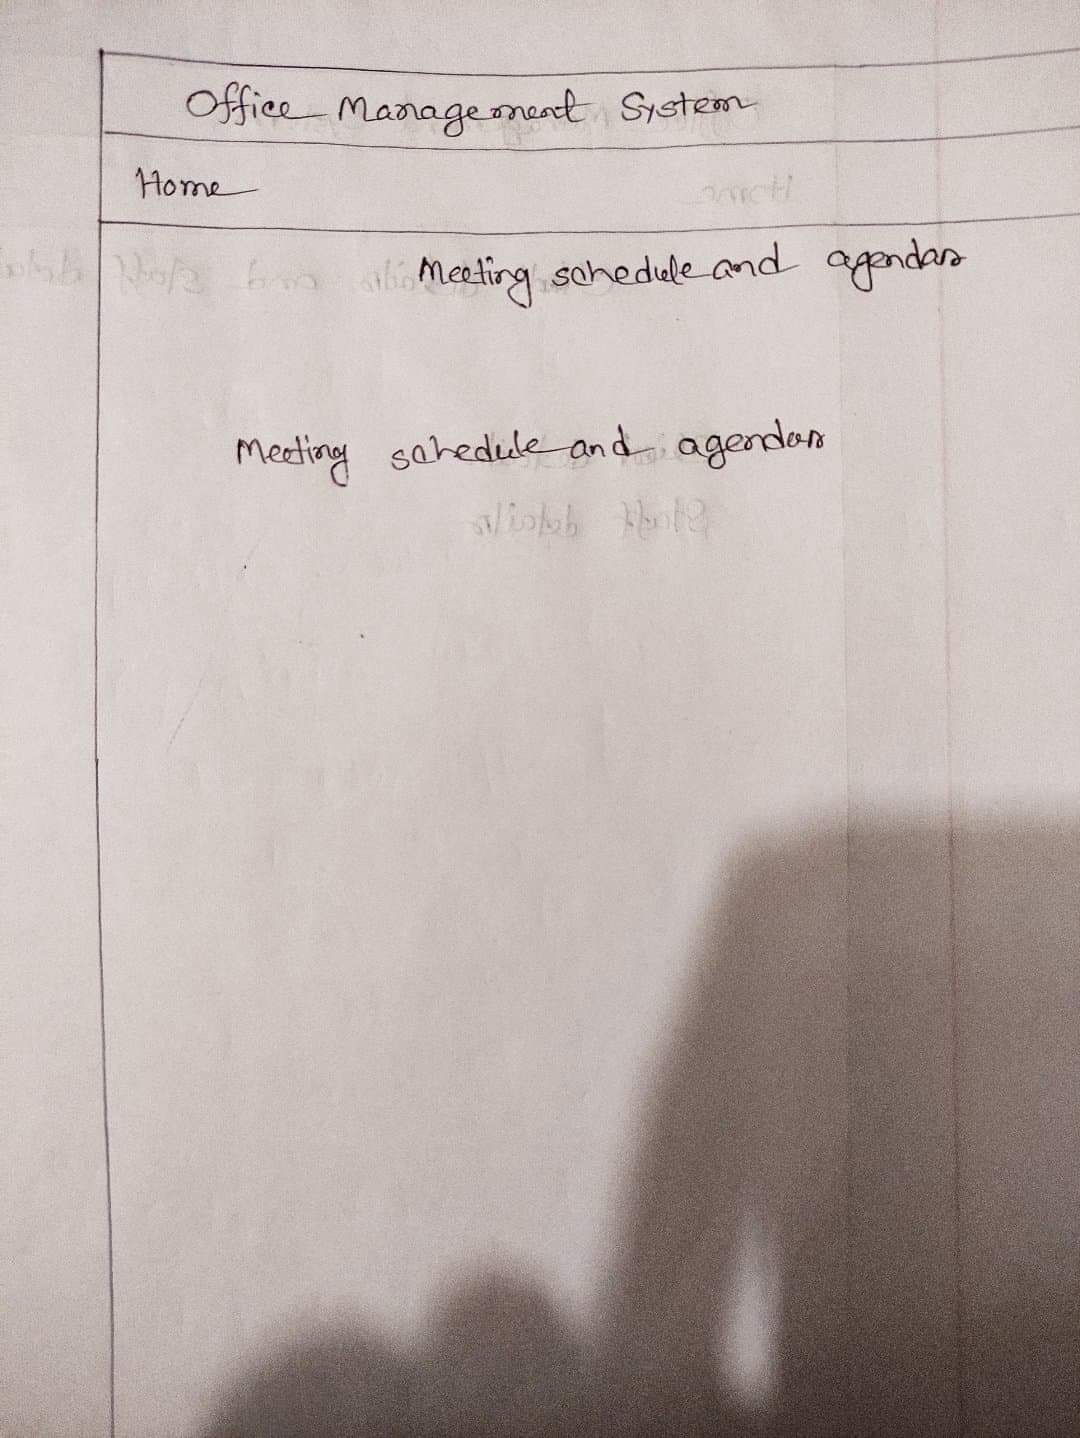 Office Management System
Home
Meeting schedule and agendas
Meeting schedule and agendas